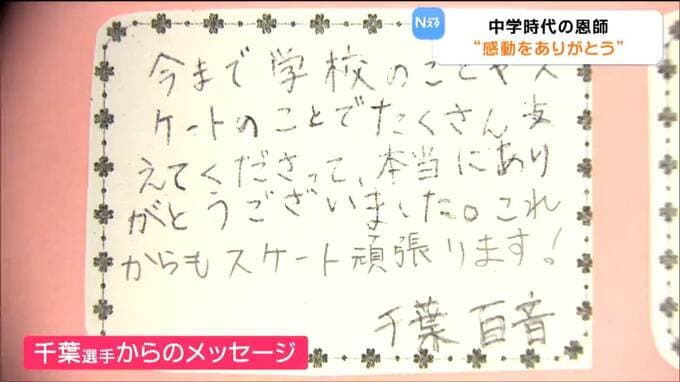 Nスる
中学時代の恩師
“感動をありがとう”
今まで学校のことやス
ケートのことでたくさん支
えてくださって、本当にあり
がとうございました。これ
からもスケート頑張ります!
千葉百音
千葉選手からのメッセージ